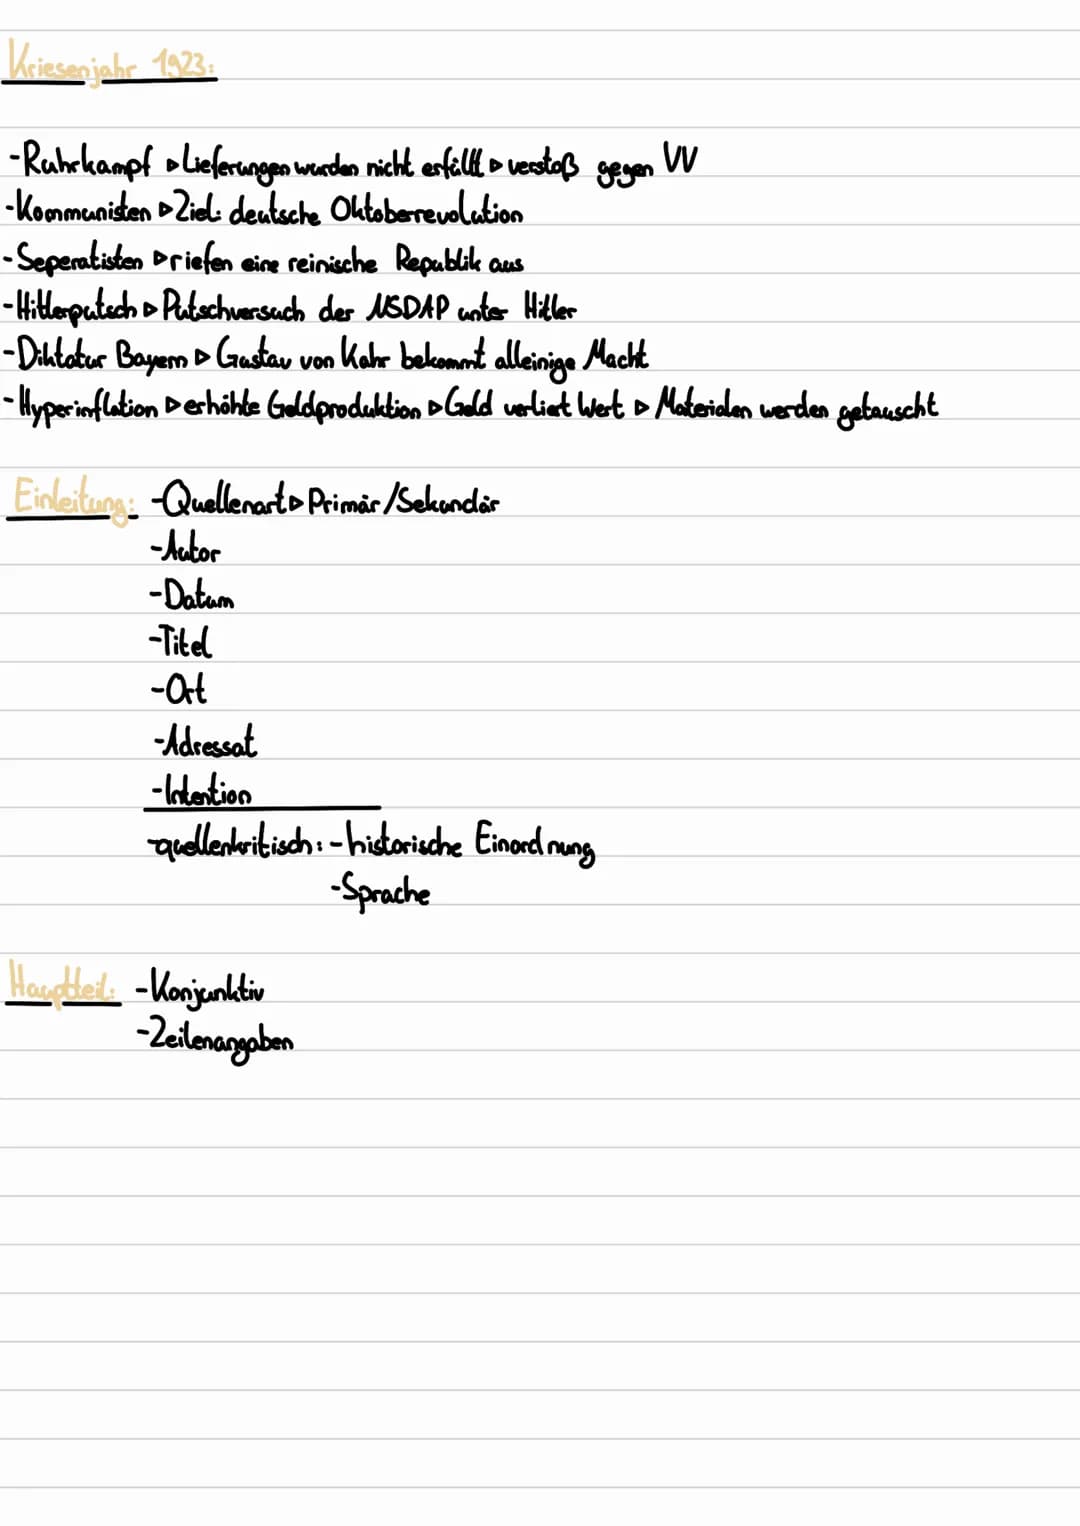 Kriesenjahr 1923:
-Ruhrkampf ▹ Lieferungen wurden nicht erfüllt ▹ verstoß gegen VV
-Kommunisten ▹ Ziel: deutsche Oktoberrevolution
-Seperatisten ▹ riefen eine reinische Republik aus
-Hitlerputsch ▹ Putschversuch der NSDAP unter Hitler
-Diktatur Bayern ▹ Gustav von Kahr bekommt alleinige Macht
-Hyperinflation ▹ erhöhte Geldproduktion ▹ Geld verliert Wert ▹ Materialen werden getauscht
Einleitung: -Quellenart ▹ Primär/Sekundär
-Autor
-Datum
-Titel
-Ort
-Adressat
-Intention
-quellenkritisch: -historische Einordnung
-Sprache
Hauptteil: -Konjunktiv
-Zeilenangaben